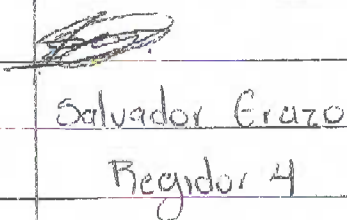 Salvador Erazo
Regidor 4